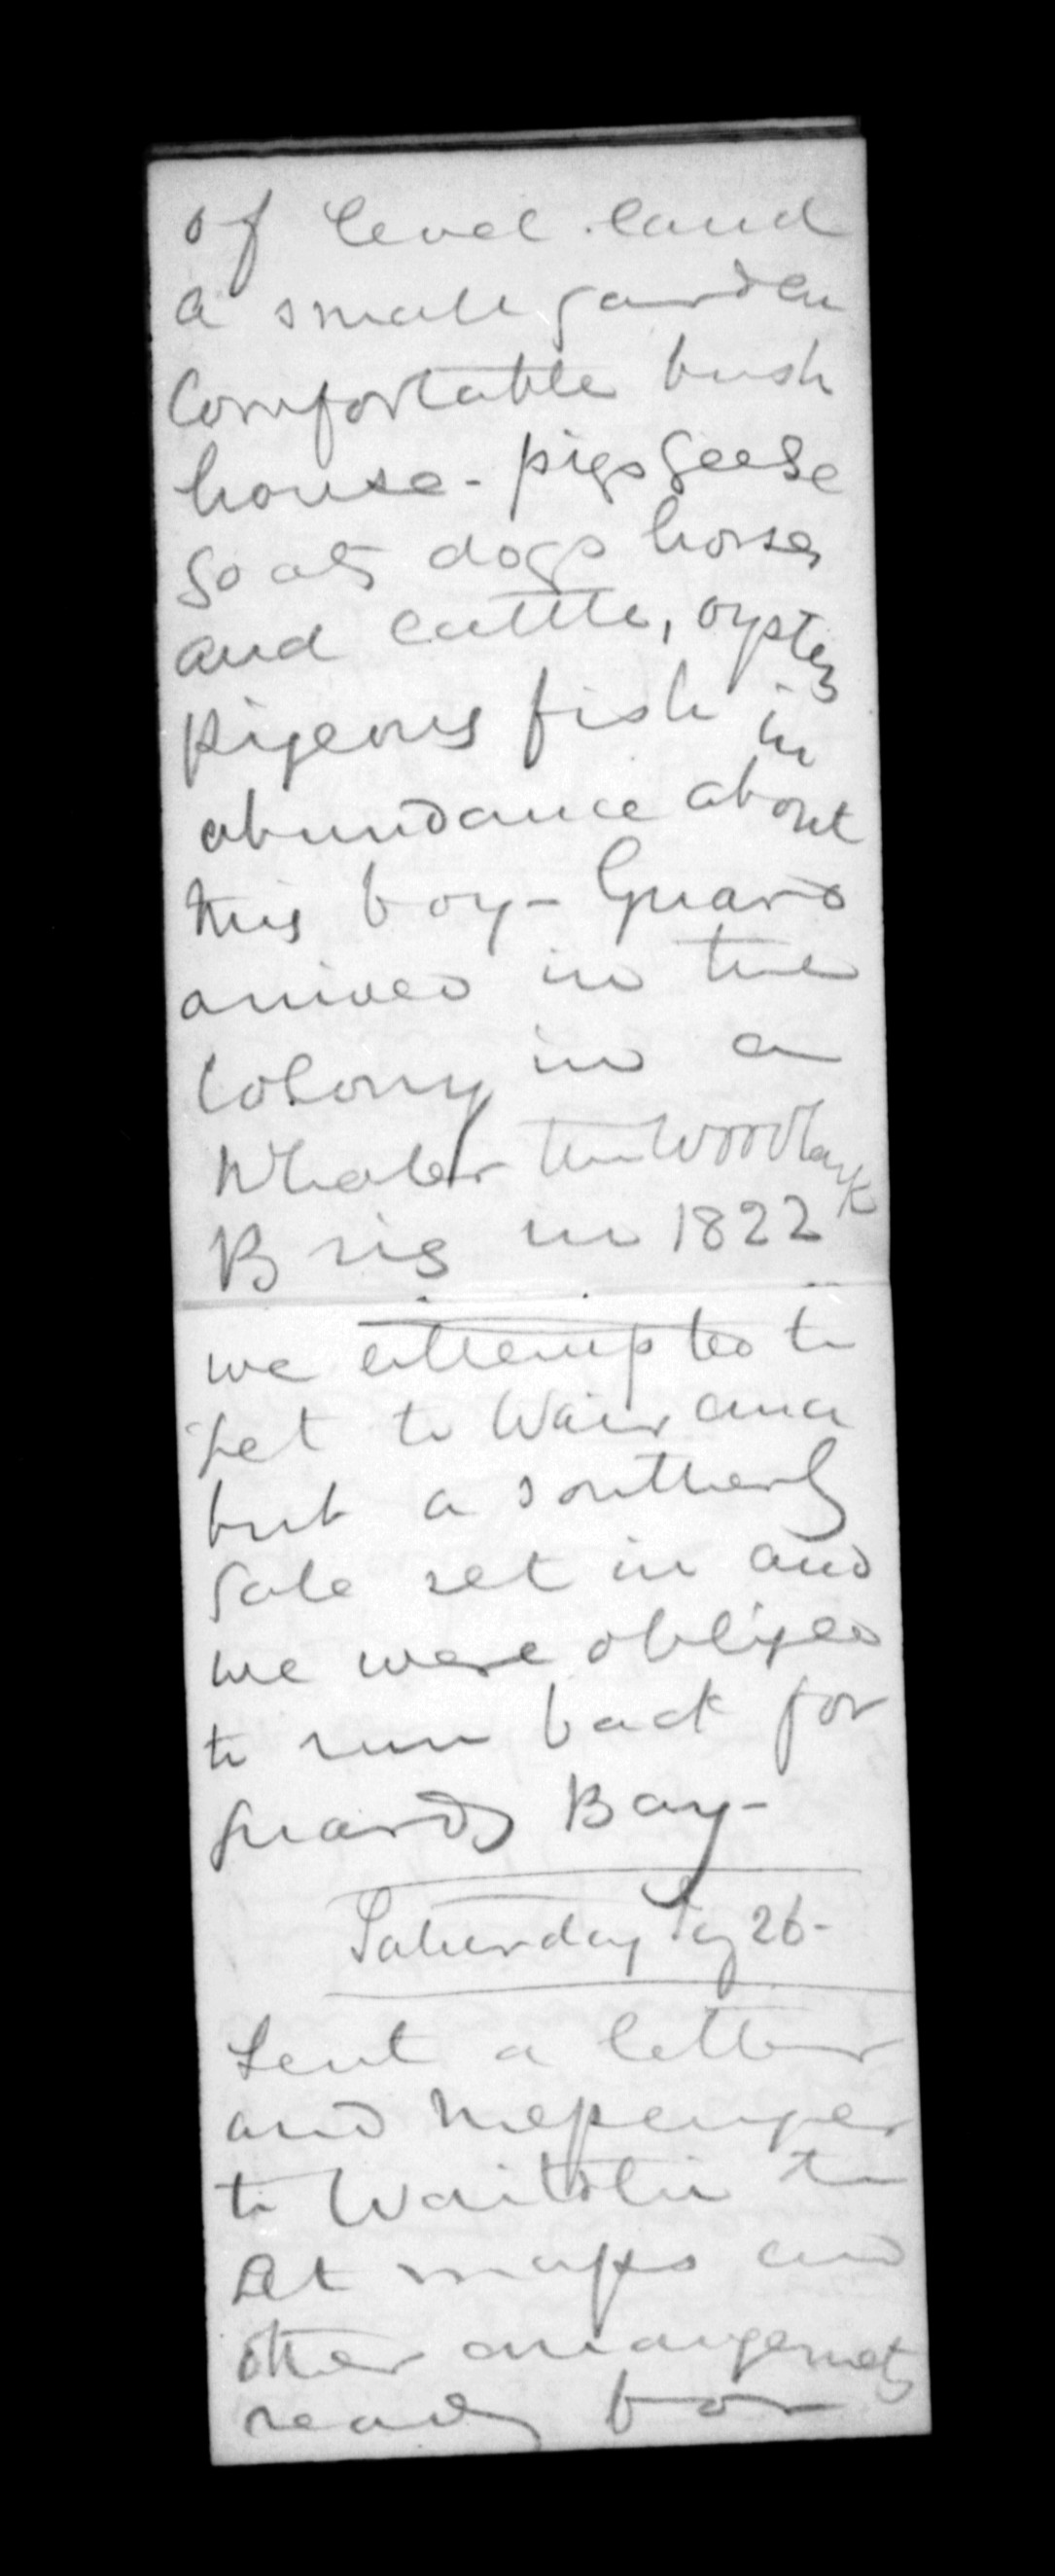 of level land
a small garden
Comfortable bush
house - pigs geese
goats dogs horses
and cattle, oysters
pigeons fish in
abundance about
this bay - Guard
arrived in the
Colony in a
Whaler the Woodlark
Brig in 1822
we attempted to
get to Wairau
but a southerly
gale set in and
we were obliged
to run back for
Guards Bay -
Saturday 26 -
Sent a letter
and messenger
to Waitohi to
get maps and
other arrangemets
ready for